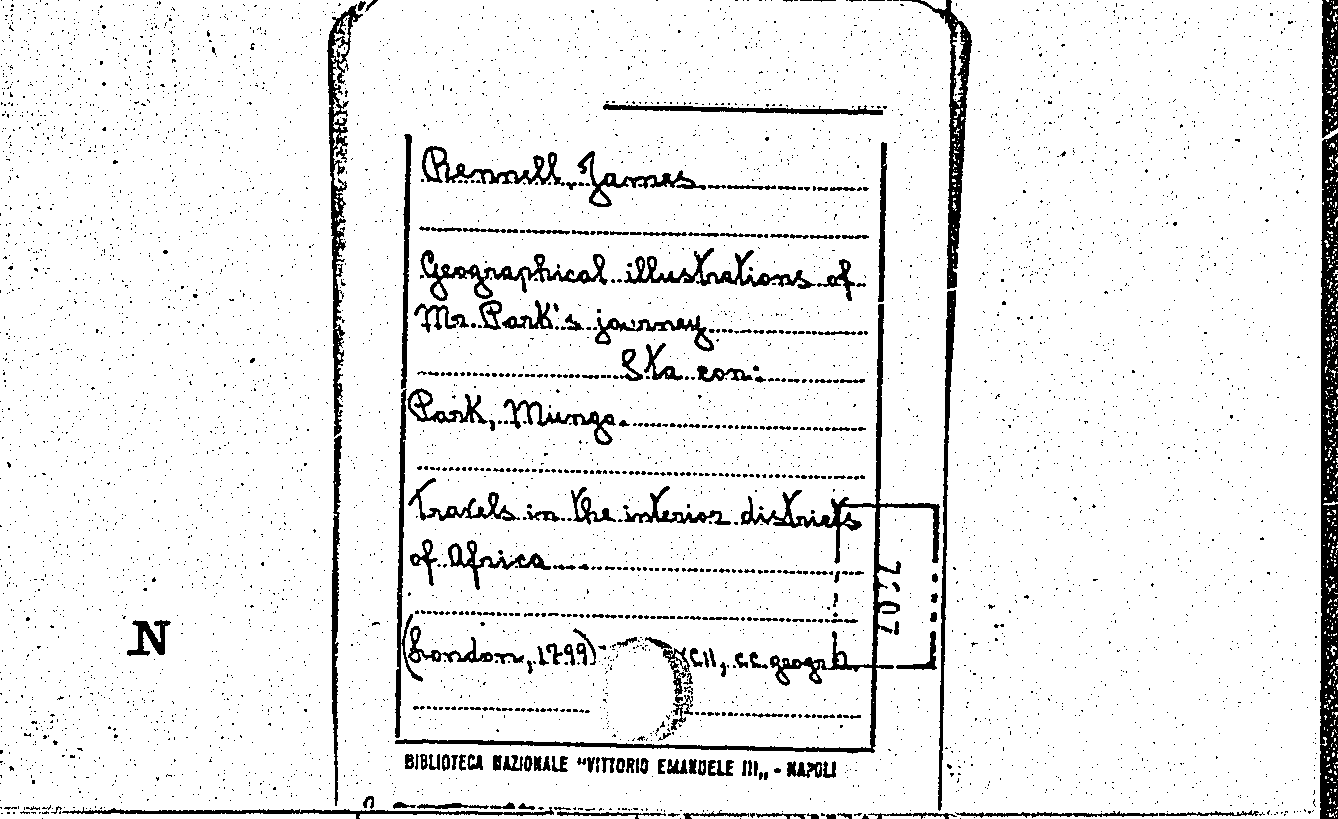 Rennell, James
Geographical illustrations of
Mr. Park's journey
Sta con:
Park, Mungo.
Travels in the interior districts
of Africa
(London, 1799) CII, c.c. geogr.
BIBLIOTECA NAZIONALE "VITTORIO EMANUELE III„ - NAPOLI
N